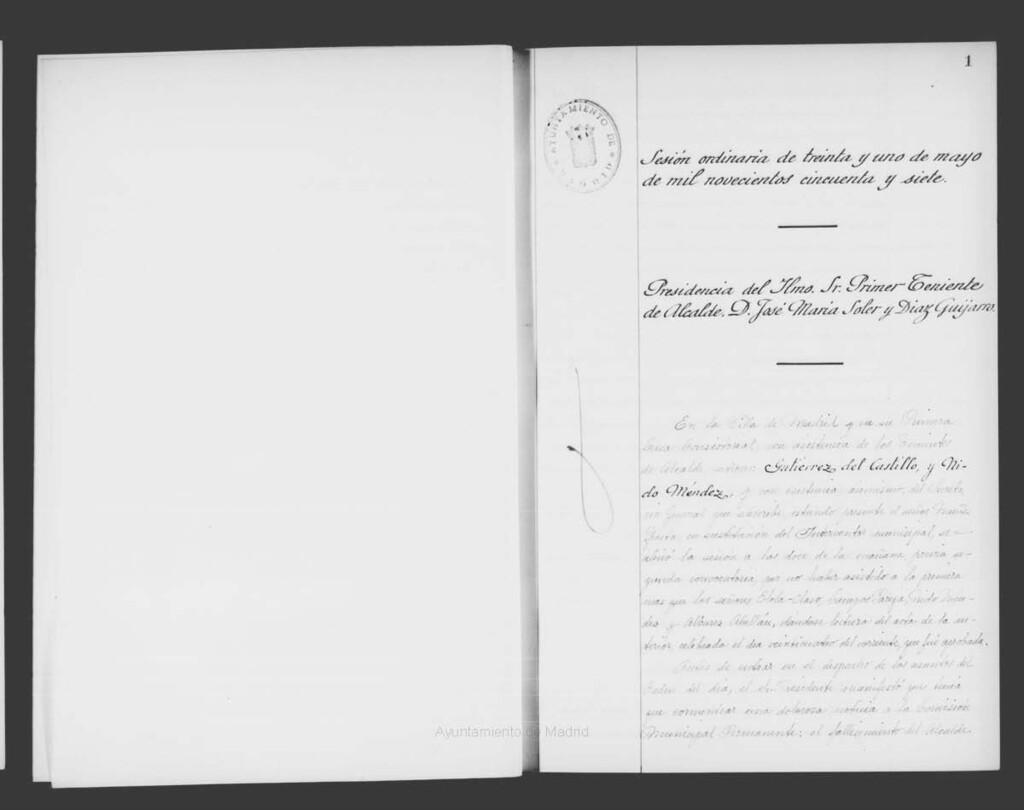 1
AYUNTAMIENTO DE
Sesión ordinaria de treinta y uno de mayo
de mil novecientos cincuenta y siete.
Presidencia del Ilmo. Sr. Primer Teniente
de Alcalde. D. José Maria Soler y Diaz Guijarro.
En la Villa de Madrid y en su Primera
Casa Consistorial, con asistencia de los Tenientes
de Alcalde señores Gutierrez del Castillo, y Ni-
eto Méndez, y con asistencia asimismo, del Secreta
rio General que suscribe, estando presente el señor
en sustitución del Interventor municipal, se
abrió la sesión a las doce de la mañana, previa se-
gunda convocatoria, por no haber asistido a la primera
mas que los señores Elola-Olaso, Campos Pareja, Nieto Mén-
dez y Alvarez Abellán, dándose lectura del acta de la an-
terior, celebrada el dia veinticuatro del corriente, que fué aprobada.
Antes de entrar en el despacho de los asuntos del
Orden del dia, el Sr. Presidente manifestó que tenia
que comunicar una dolorosa noticia a la Comisión
Municipal Permanente: el fallecimiento del Alcalde
Ayuntamiento de Madrid